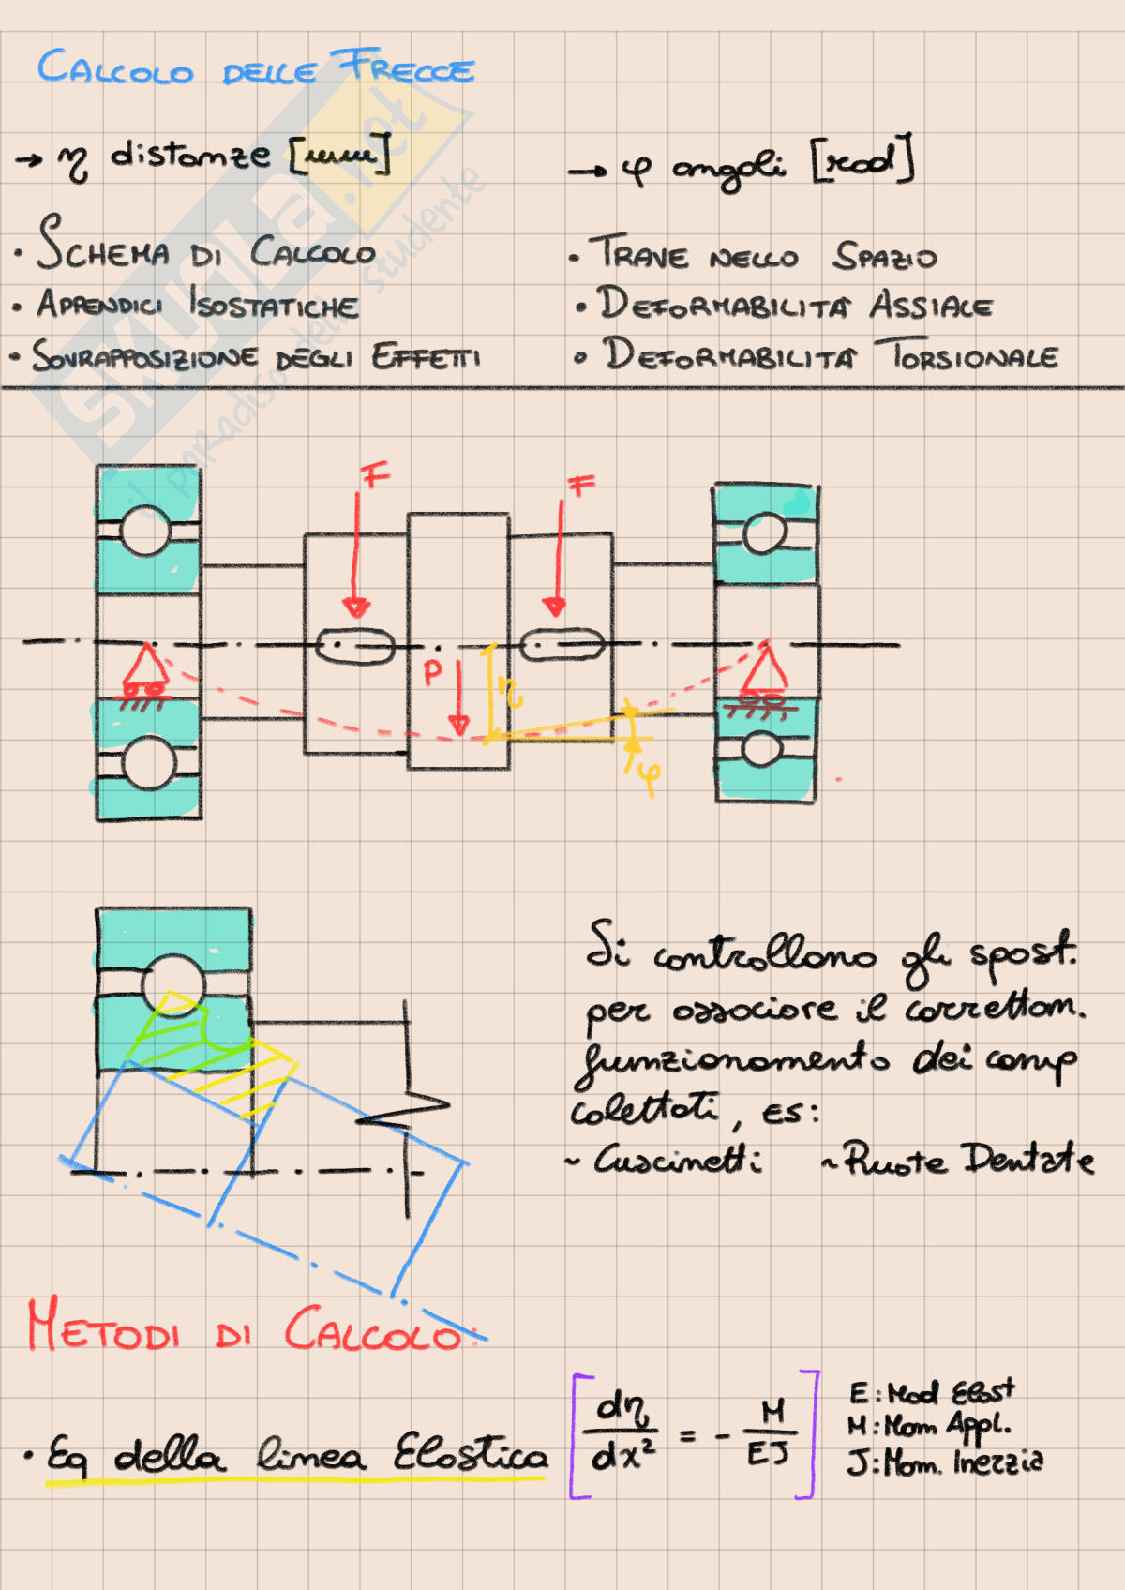 CALCOLO DELLE FRECCE
→ η distanze [mm]
→ φ angoli [rad]
· SCHEMA DI CALCOLO
· APPENDICI ISOSTATICHE
· SOVRAPPOSIZIONE DEGLI EFFETTI
· TRAVE NELLO SPAZIO
· DEFORMABILITÀ ASSIALE
· DEFORMABILITÀ TORSIONALE
SKUOLA.net
il paradiso dello studente
F
F
P
η
φ
Si controllano gli spost.
per associare il correttam.
funzionamento dei comp
calettati, ES:
~ Cuscinetti ~ Ruote Dentate
METODI DI CALCOLO:
· Eq della linea Elastica [dη/dx² = - M/EJ]
E: Mod Elast
M: Mom Appl.
J: Mom. Inerzia